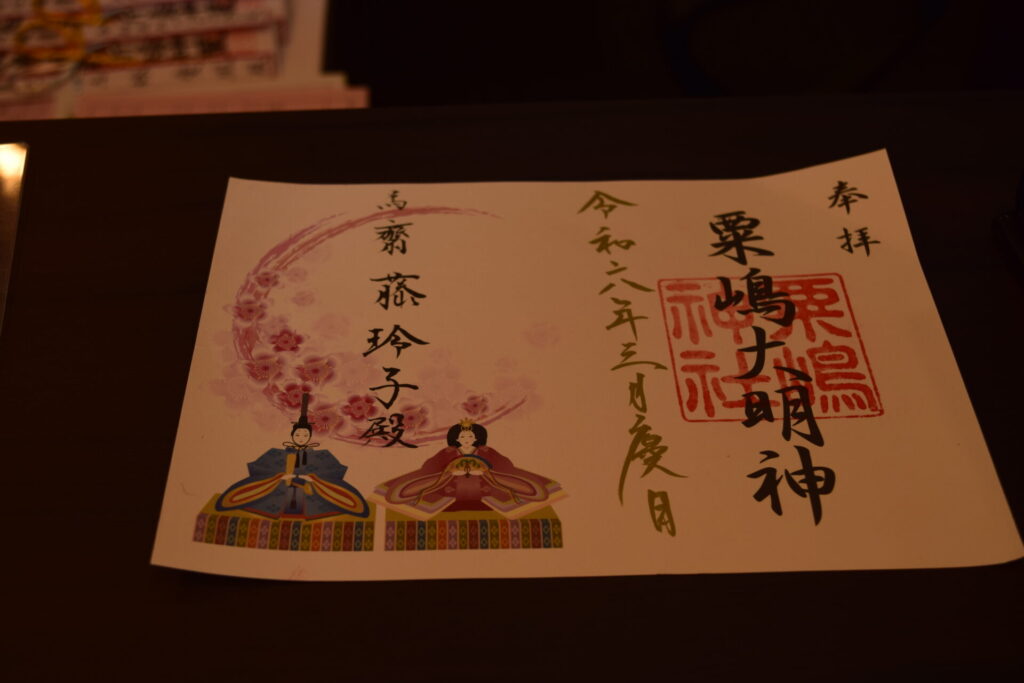 奉拝
粟嶋大明神
粟嶋
神社
令和六年三月
為齋藤玲子殿